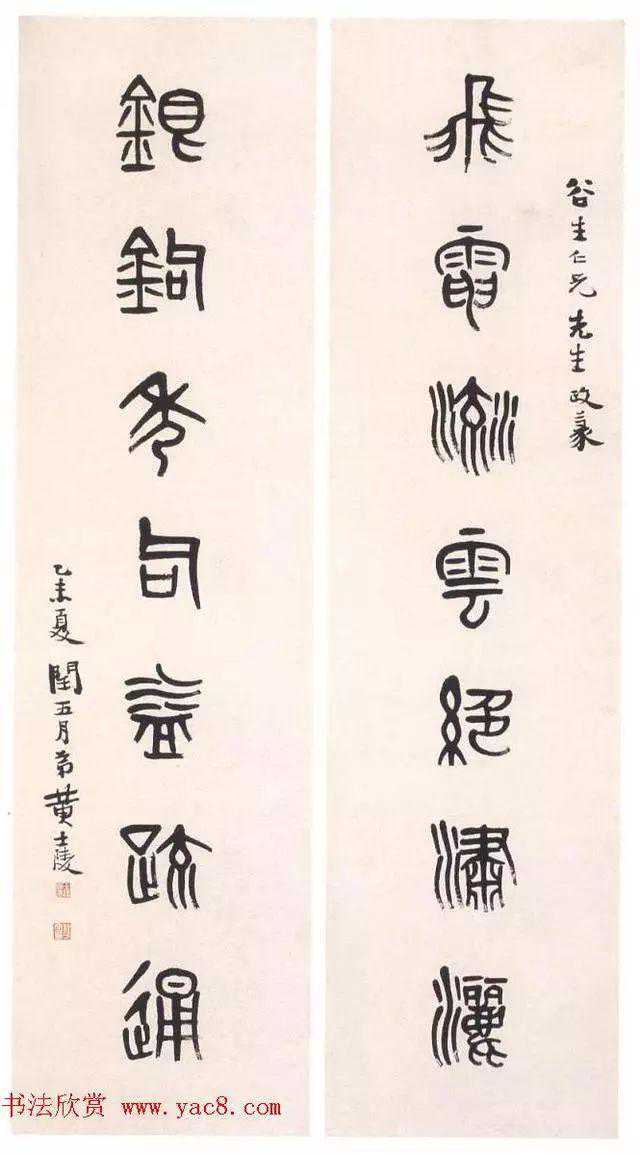 谷生仁兄先生政篆
飛電流雲絕潚灑
銀鉤秀句益疏通
乙未夏閏五月弟黃士陵
书法欣赏 www.yac8.com